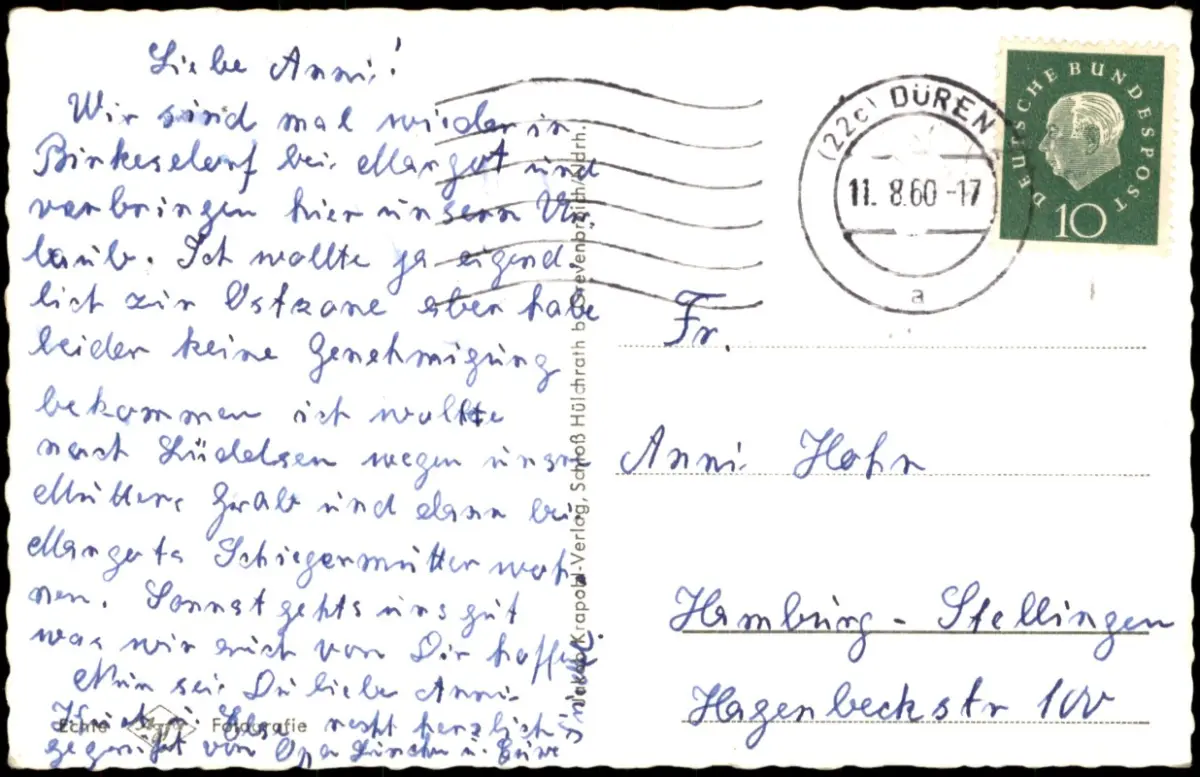 Liebe Anni!
Wir sind mal wieder in
Birkesdorf bei Margot und
verbringen hier unsern Ur,
laub. Ich wollte ja eigend,
lich zur Ostzone aber habe
leider keine Genehmigung
bekommen ich wollte
nach Lüdelsen wegen unsre
Mutters Grab und dann bei
Margots Schiegermutter woh
nen. Sonnst gehts uns gut
was wir auch von Dir hoffen
Nun sei Du liebe Anni
recht herzlich
gegrüßt von Opa u.
Echte Fotografie
Krapohl-Verlag, Schloß Hülchrath b. Grevenbroich/Ndrh.
(22c) DÜREN
11. 8.60 -17
a
DEUTSCHE BUNDESPOST
10
Fr.
Anni Hahn
Hamburg - Stellingen
Hagenbeckstr